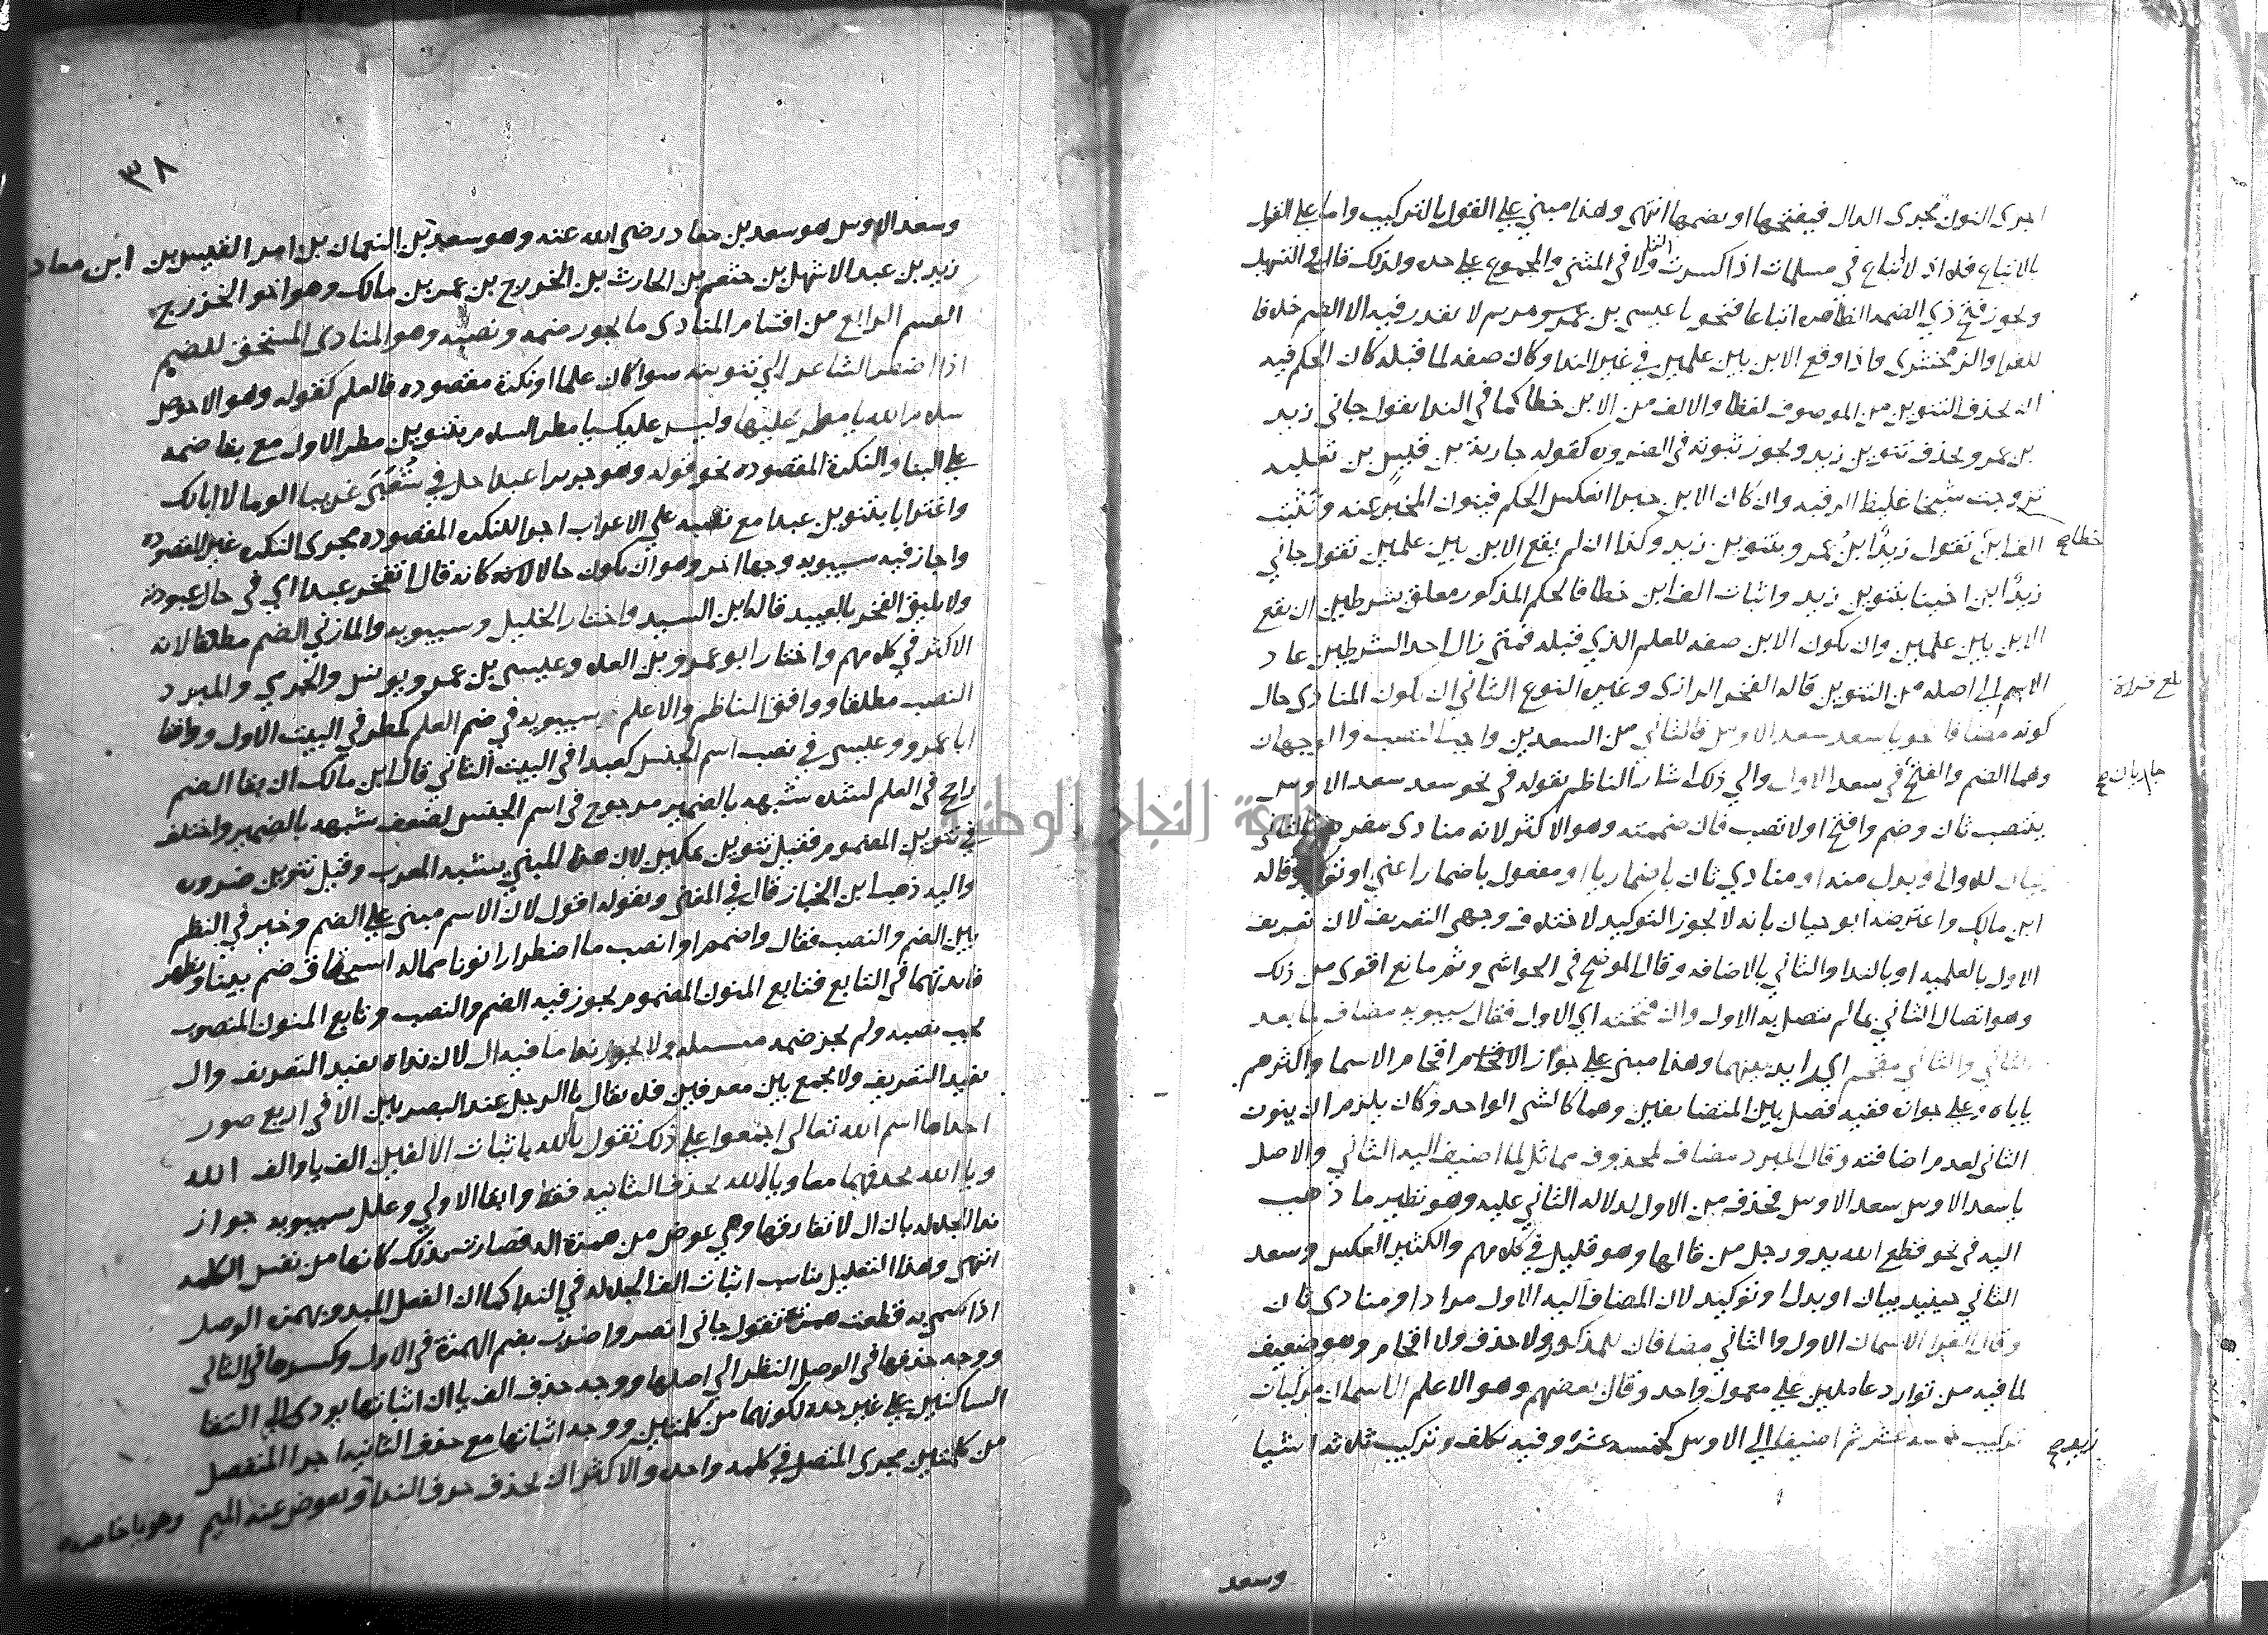 اجرى النون مجرى الدال فيفتحها او يضمها انتهى وهذا مبني على القول بالتركيب واما على القول
بالاتباع فلا اذ لا اتباع في مسلمات اذا كسرت التا ولا في المثنى والمجموع على حده ولذلك قال في التسهيل
ويجوز فتح ذي الضمه الظاهره اتباعا فنحو يا عيسى بن مريم لا يقدر فيه الا الضم خلافا
للفرا والزمخشرى واذا وقع الابن بين علمين في غير الندا وكان صفه لما قبله كان الحكم فيه
ان يحذف التنوين من الموصوف لفظا والالف من الابن خطا كما في الندا يقول جاني زيد
بن عمر ويحذف تنوين زيد ويجوز ثبوته في الضروره كقوله جارية من قيس بن ثعلبه
تزوجت شيخا غليظ الرقبه وان كان الابن خبرا انعكس الحكم فينون المخبر عنه وتثبت
خطا صح
الف ابن تقول زيد ابن عمرو بتنوين زيد وكذا ان لم يقع الابن بين علمين تقول جاني
زيد ابن اخينا بتنوين زيد واثبات الف ابن خطا فالحكم المذكور معلق بشرطين ان يقع
الابن بين علمين وان يكون الابن صفه للعلم الذي قبله فمتى زال احد الشرطين عاد
الاسم الى اصله من التنوين قاله الفخر الرازى وغيره النوع الثاني ان يكون المنادى حال
كونه مضافا نحو يا سعد سعد الاوس فالثاني من السعدين واجب النصب والوجهان
جايزان صح
وهما الضم والفتح في سعد الاول والي ذلك اشار الناظم بقوله في نحو سعد سعد الاوس
ينتصب ثان وضم وافتح اولا تصب فان ضممته وهو الاكثر لانه منادى مفرد فالثاني
بيان للاول او بدل منه او منادي ثان باضمار يا او مفعول باضمار اعني او توكيد قاله
ابن مالك واعترضه ابو حيان بانه لا يجوز التوكيد لاختلاف وجهى التعريف لان تعريف
الاول بالعلميه او بالندا والثاني بالاضافه وقال الموضح في الحواشي وثم مانع اقوى من ذلك
وهو اتصال الثاني بما لم يتصل به الاول وان فتحته اي الاول فقال سيبويه مضاف لما بعد
الثاني والثاني مقحم اي زايد بينهما وهذا مبني على جواز اقحام الاسما واكثرهم
ياباه وعلى جوازه ففيه فصل بين المتضايفين وهما كالشي الواحد وكان يلزم ان ينون
الثاني لعدم اضافته وقال المبرد مضاف لمحذوف مماثل لما اضيف اليه الثاني والاصل
يا سعد الاوس سعد الاوس فحذف من الاول لدلالة الثاني عليه وهو نظير ما ذهب
اليه في نحو قطع الله يد ورجل من قالها وهو قليل في كلامهم والكثير العكس وسعد
الثاني حينيد بيان او بدل او توكيد لان المضاف اليه الاول مراد او منادى ثان
وقال الفرا الاسمان الاول والثاني مضافان للمذكور ولا حذف ولا اقحام وهو ضعيف
لما فيه من توارد عاملين على معمول واحد وقال بعضهم وهو الاعلم الاسمان مركبان
تركيب خمسه عشر ثم اضيفا الي الاوس كخمسه عشره وفيه تكلف وتركيب ثلاثه اشيا
وسعد
٣٨
وسعد الاوس هو سعد بن معاذ رضي الله عنه وهو سعد بن النعمان بن امرا القيس بن ابن معاد
زيد بن عبد الاشهل بن جشم بن الحارث بن الخزرج بن عمر بن مالك وهو اخو الخزرج
القسم الرابع من اقسام المنادى ما يجوز ضمه ونصبه وهو المنادى المستحق للضم
اذا اضطر الشاعر الى تنوينه سوا كان علما او نكرة مقصوده فالعلم كقوله وهو الاحوص
سلام الله يا مطر عليها وليس عليك يا مطر السلام بتنوين مطر الاول مع بقا ضمه
على البنا والنكرة المقصوده نحو قوله وهو جرير اعبدا حل في شعبى غريبا الوما لا ابالك
واغترابا بتنوين عبدا مع نصبه علي الاعراب اجرا للنكره المقصوده مجرى النكره غير المقصوده
واجاز فيه سيبويه وجها اخر وهو ان يكون حالا كانه قال اتفخر عبدا اي في حال عبوديه
ولا يليق الفخر بالعبيد قاله ابن السيد واختار الخليل وسيبويه والمازني الضم مطلقا لانه
الاكثر في كلامهم واختار ابو عمرو بن العلا وعيسى بن عمر ويونس والجرمي والمبرد
النصب مطلقا ووافق الناظم والاعلم سيبويه في ضم العلم كمطر في البيت الاول ووافقا
ابا عمرو وعيسى في نصب اسم الجنس كعبدا في البيت الثاني قال ابن مالك ان بقا الضم
راجح في العلم لشده شبهه بالضمير مرجوح في اسم الجنس لضعف شبهه بالضمير واختلف
في تنوين المضموم فقيل تنوين تمكين لان هذا المبني يشبه المعرب وقيل تنوين ضروره
واليه ذهب ابن الخباز قال في المغني وبقوله اقول لان الاسم مبني على الضم وخير في النظم
بين الضم والنصب فقال واضمم او انصب ما اضطرارا نونا مما له استحقاق ضم بينا وتظهر
فايدتهما في التابع فتابع المنون المضموم يجوز فيه الضم والنصب وتابع المنون المنصوب
يجب نصبه ولم يجز ضمه مسله ولا يجوز ندا ما فيه ال لان نداه يفيد التعريف وال
تفيد التعريف ولا يجمع بين معرفين فلا يقال يا الرجل عند البصريين الا في اربع صور
احداها اسم الله تعالى اجمعوا على ذلك تقول يالله باثبات الالفين الف يا والف الله
ويا الله بحذفهما معا ويا الله بحذف الثانيه فقط وابقا الاولي وعلل سيبويه جواز
ندا الجلاله بان ال لا تفارقها وهي عوض من همزة اله فصارت بذلك كانها من نفس الكلمه
انتهى وهذا التعليل يناسب اثبات الف الجلاله في الندا كما ان الفعل المبدو بهمزه الوصل
اذا سمي به قطعت همزته تقول جاني انصر واضرب بضم الهمزة في الاول وكسرها في الثاني
ووجه حذفها في الوصل النظر الى اصلها ووجه حذف الف يا ان اثباتها يودى الي التقا
الساكنين على غير حده لكونهما من كلمتين ووجه اثباتها مع حذف الثانيه اجرا المنفصل
من كلمتين مجرى المتصل في كلمه واحده والاكثر ان يحذف حرف الندا ويعوض عنه الميم وهو يا خاصه
جامعة النجاح الوطنية